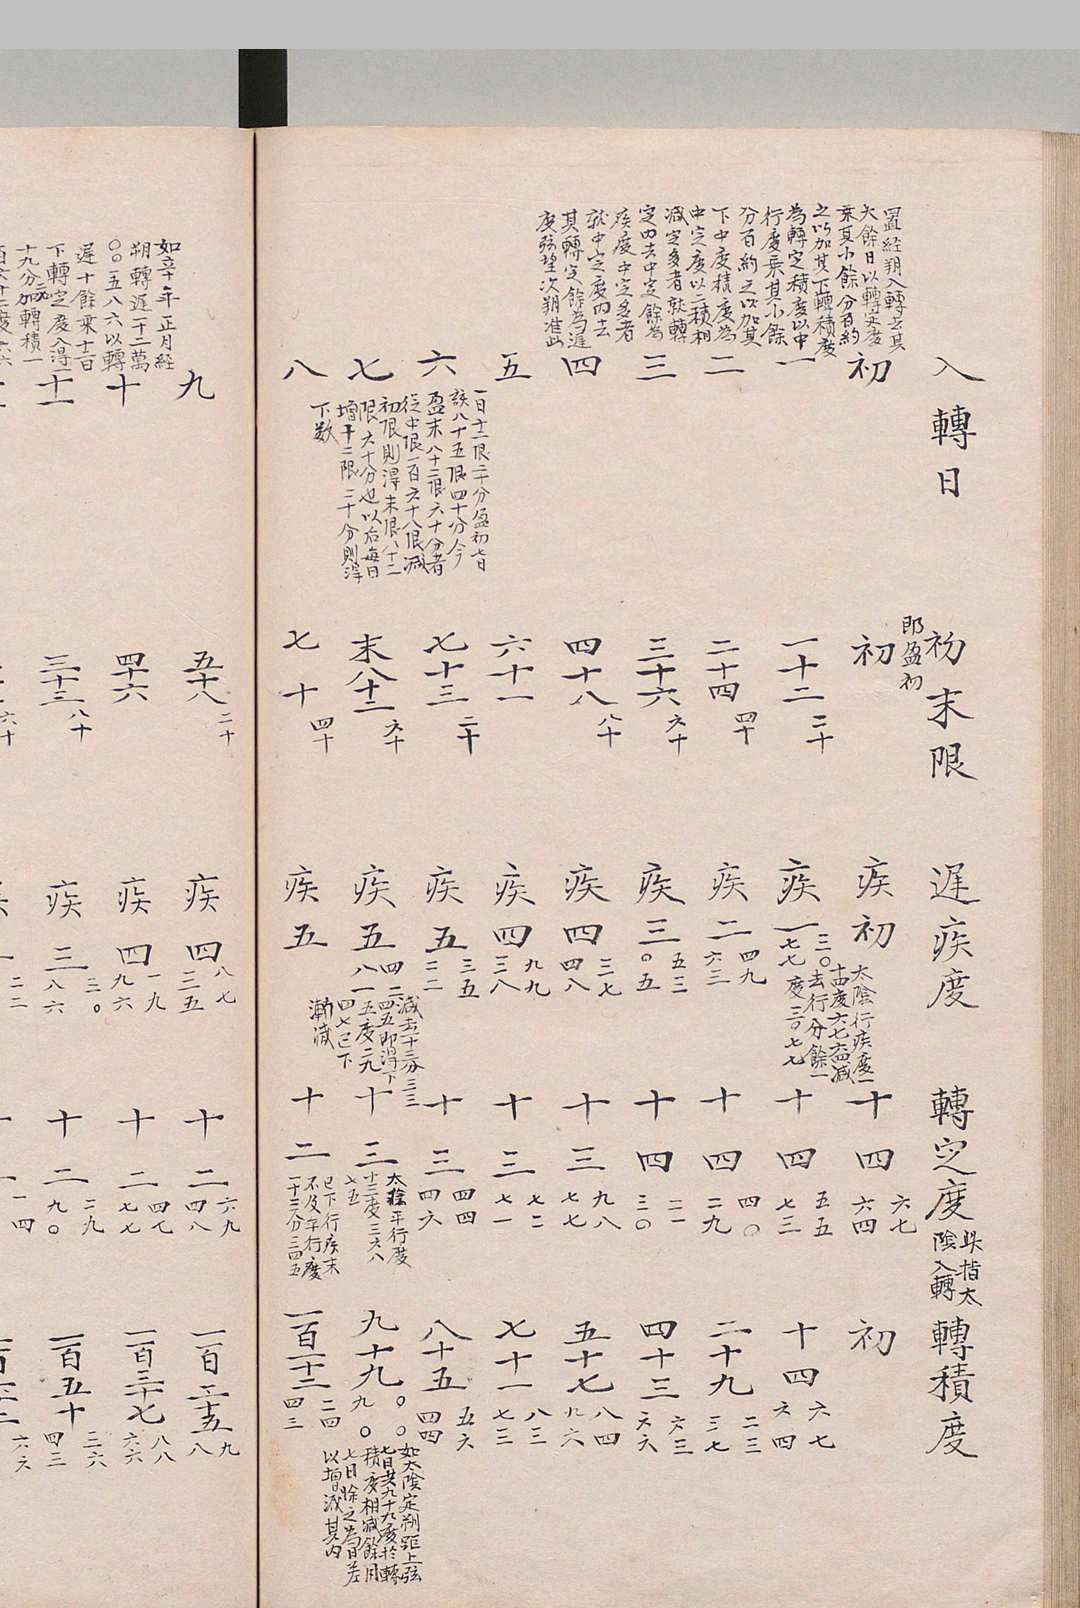 入轉日
初末限
遲疾度
轉定度
此指太
陰入轉
轉積度
置經朔入轉去其
大餘日以轉定度
乘其小餘分百約
之以加其下轉積度
為轉定積度以中
行度乘其小餘
分百約之以加其
下中度積度為
中定度以二積相
減定多者就轉
定內去中定餘為
疾度中定多者
就中定度內去
其轉定餘為遲
度弦望次朔准此
初
即盈初
初
疾初
十四
六七
六四
初
一
一十二
二十
疾一
三〇
七七
太陰行疾度一
十四度六七六四減
去行分餘一
度三〇七七
十四
五五
七三
十四
六七
六四
二
二十四
四十
疾二
四九
六三
十四
四〇
二九
二十九
二三
三七
三
三十六
六十
疾三
五三
〇五
十四
二一
三〇
四十三
六三
六六
四
四十八
八十
疾四
三七
四八
十三
九八
七七
五十七
八四
九六
五
六十一
疾四
九九
三八
十三
七二
七一
七十一
八三
七三
六
一日十二限二十分盈初七日
該八十五限四十分今
盈末八十二限六十分者
從中限一百六十八限減
初限則得末限八十二
限六十分也以后每日
增十二限二十分則得
下数
七十三
二十
疾五
三五
二二
十三
四四
四六
八十五
五六
四四
七
末八十二
六十
疾五
四二
八一
減去十三分三三
四五即得下
五度二九
四七已下
漸減
十三
太陰平行度
十三度三六八
七五
已下行疾末
不及平行度
一十三分三四五
九十九
〇〇
九〇
如太陰定朔距上弦
皆日共九十九度於轉
積度相減餘用
七日除之為日差
以增減其內
八
七十
四十
疾五
十二
一百一十二
二四
四三
九
五十八
二十
疾四
八七
三五
十二
六九
四八
一百二十五
九
八
十
四十六
疾四
一九
九六
十二
四七
七七
一百三十七
八八
六六
十一
三十三
八十
疾三
三〇
八六
十二
二九
九〇
一百五十
三六
四三
如辛巳年正月經
朔轉遲二十二萬
〇〇五八六以轉
遲十餘乘十二日
下轉定度入得二
十九分加轉積一